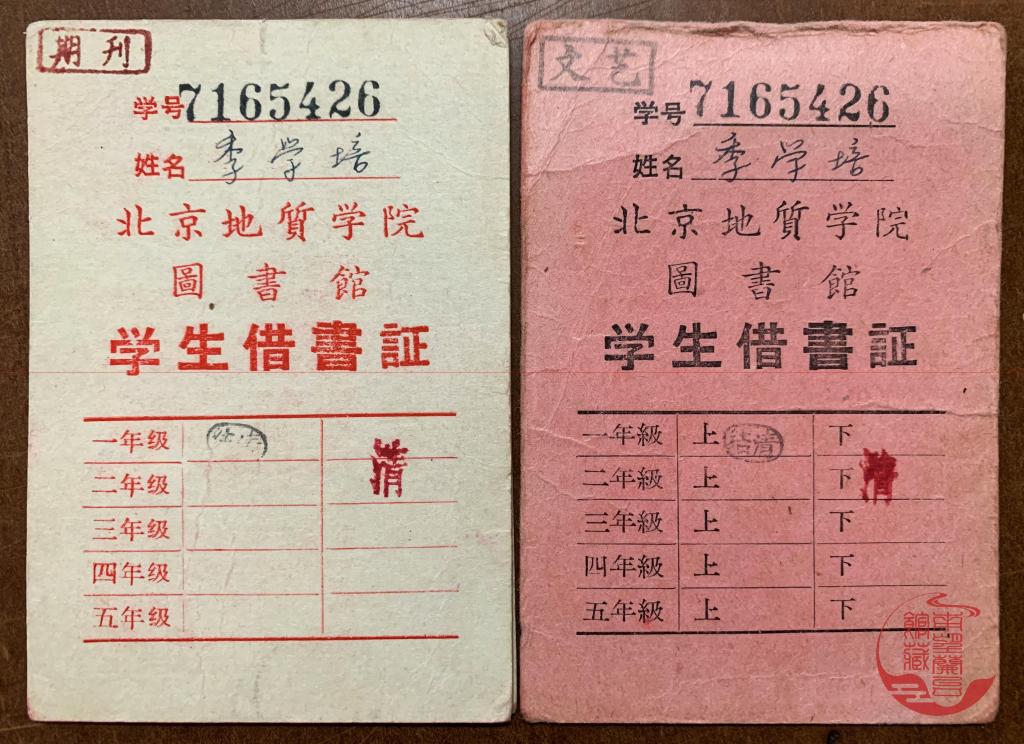 期刊
学号7165426
姓名 季学培
北京地質学院
圖書館
学生借書証
一年级
清
二年级
三年级
四年级
五年级
文艺
学号7165426
姓名 季学培
北京地質学院
圖書館
学生借書証
一年級 上 结清 下
清
二年級 上 下
三年級 上 下
四年級 上 下
五年級 上 下
館藏